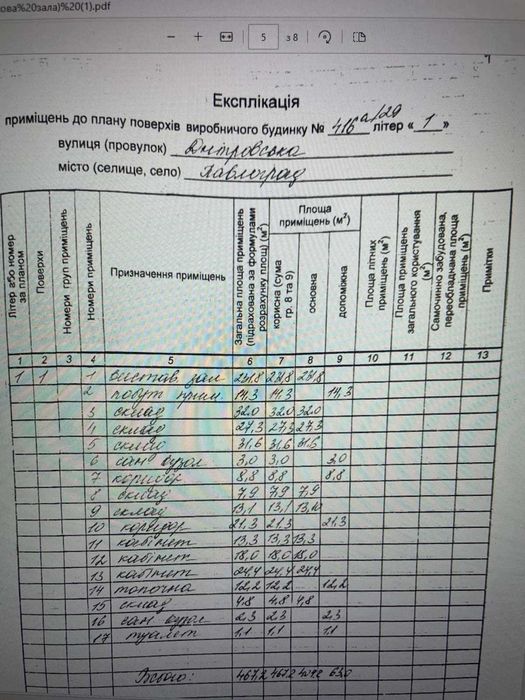 ова%20зала)%20(1).pdf
5 з 8
Експлікація
приміщень до плану поверхів виробничого будинку № 416 а/29 літер « 1 »
вулиця (провулок) Дніпровська
місто (селище, село) Павлоград
Літер або номер за планом
Поверхи
Номери груп приміщень
Номери приміщень
Призначення приміщень
Загальна площа приміщень (підрахована за формулами розрахунку площ) (м²)
Площа приміщень (м²)
корисна (сума гр. 8 та 9)
основна
допоміжна
Площа літніх приміщень (м²)
Площа приміщень загального користування (м²)
Самочинно забудована, переобладнана площа приміщень (м²)
Примітки
1 2 3 4 5 6 7 8 9 10 11 12 13
1 1 1 вистав. зал 231,8 231,8 231,8
2 побут. прим. 14,3 14,3 14,3
3 склад 32,0 32,0 32,0
4 склад 27,3 27,3 27,3
5 склад 31,6 31,6 31,6
6 сан вузол 3,0 3,0 3,0
7 коридор 8,8 8,8 8,8
8 склад 7,9 7,9 7,9
9 склад 13,1 13,1 13,1
10 коридор 21,3 21,3 21,3
11 кабінет 13,3 13,3 13,3
12 кабінет 18,0 18,0 18,0
13 кабінет 24,4 24,4 24,4
14 топочна 12,2 12,2 12,2
15 склад 4,8 4,8 4,8
16 сан вузол 2,3 2,3 2,3
17 туалет 1,1 1,1 1,1
Всього: 467,2 467,2 404,2 63,0